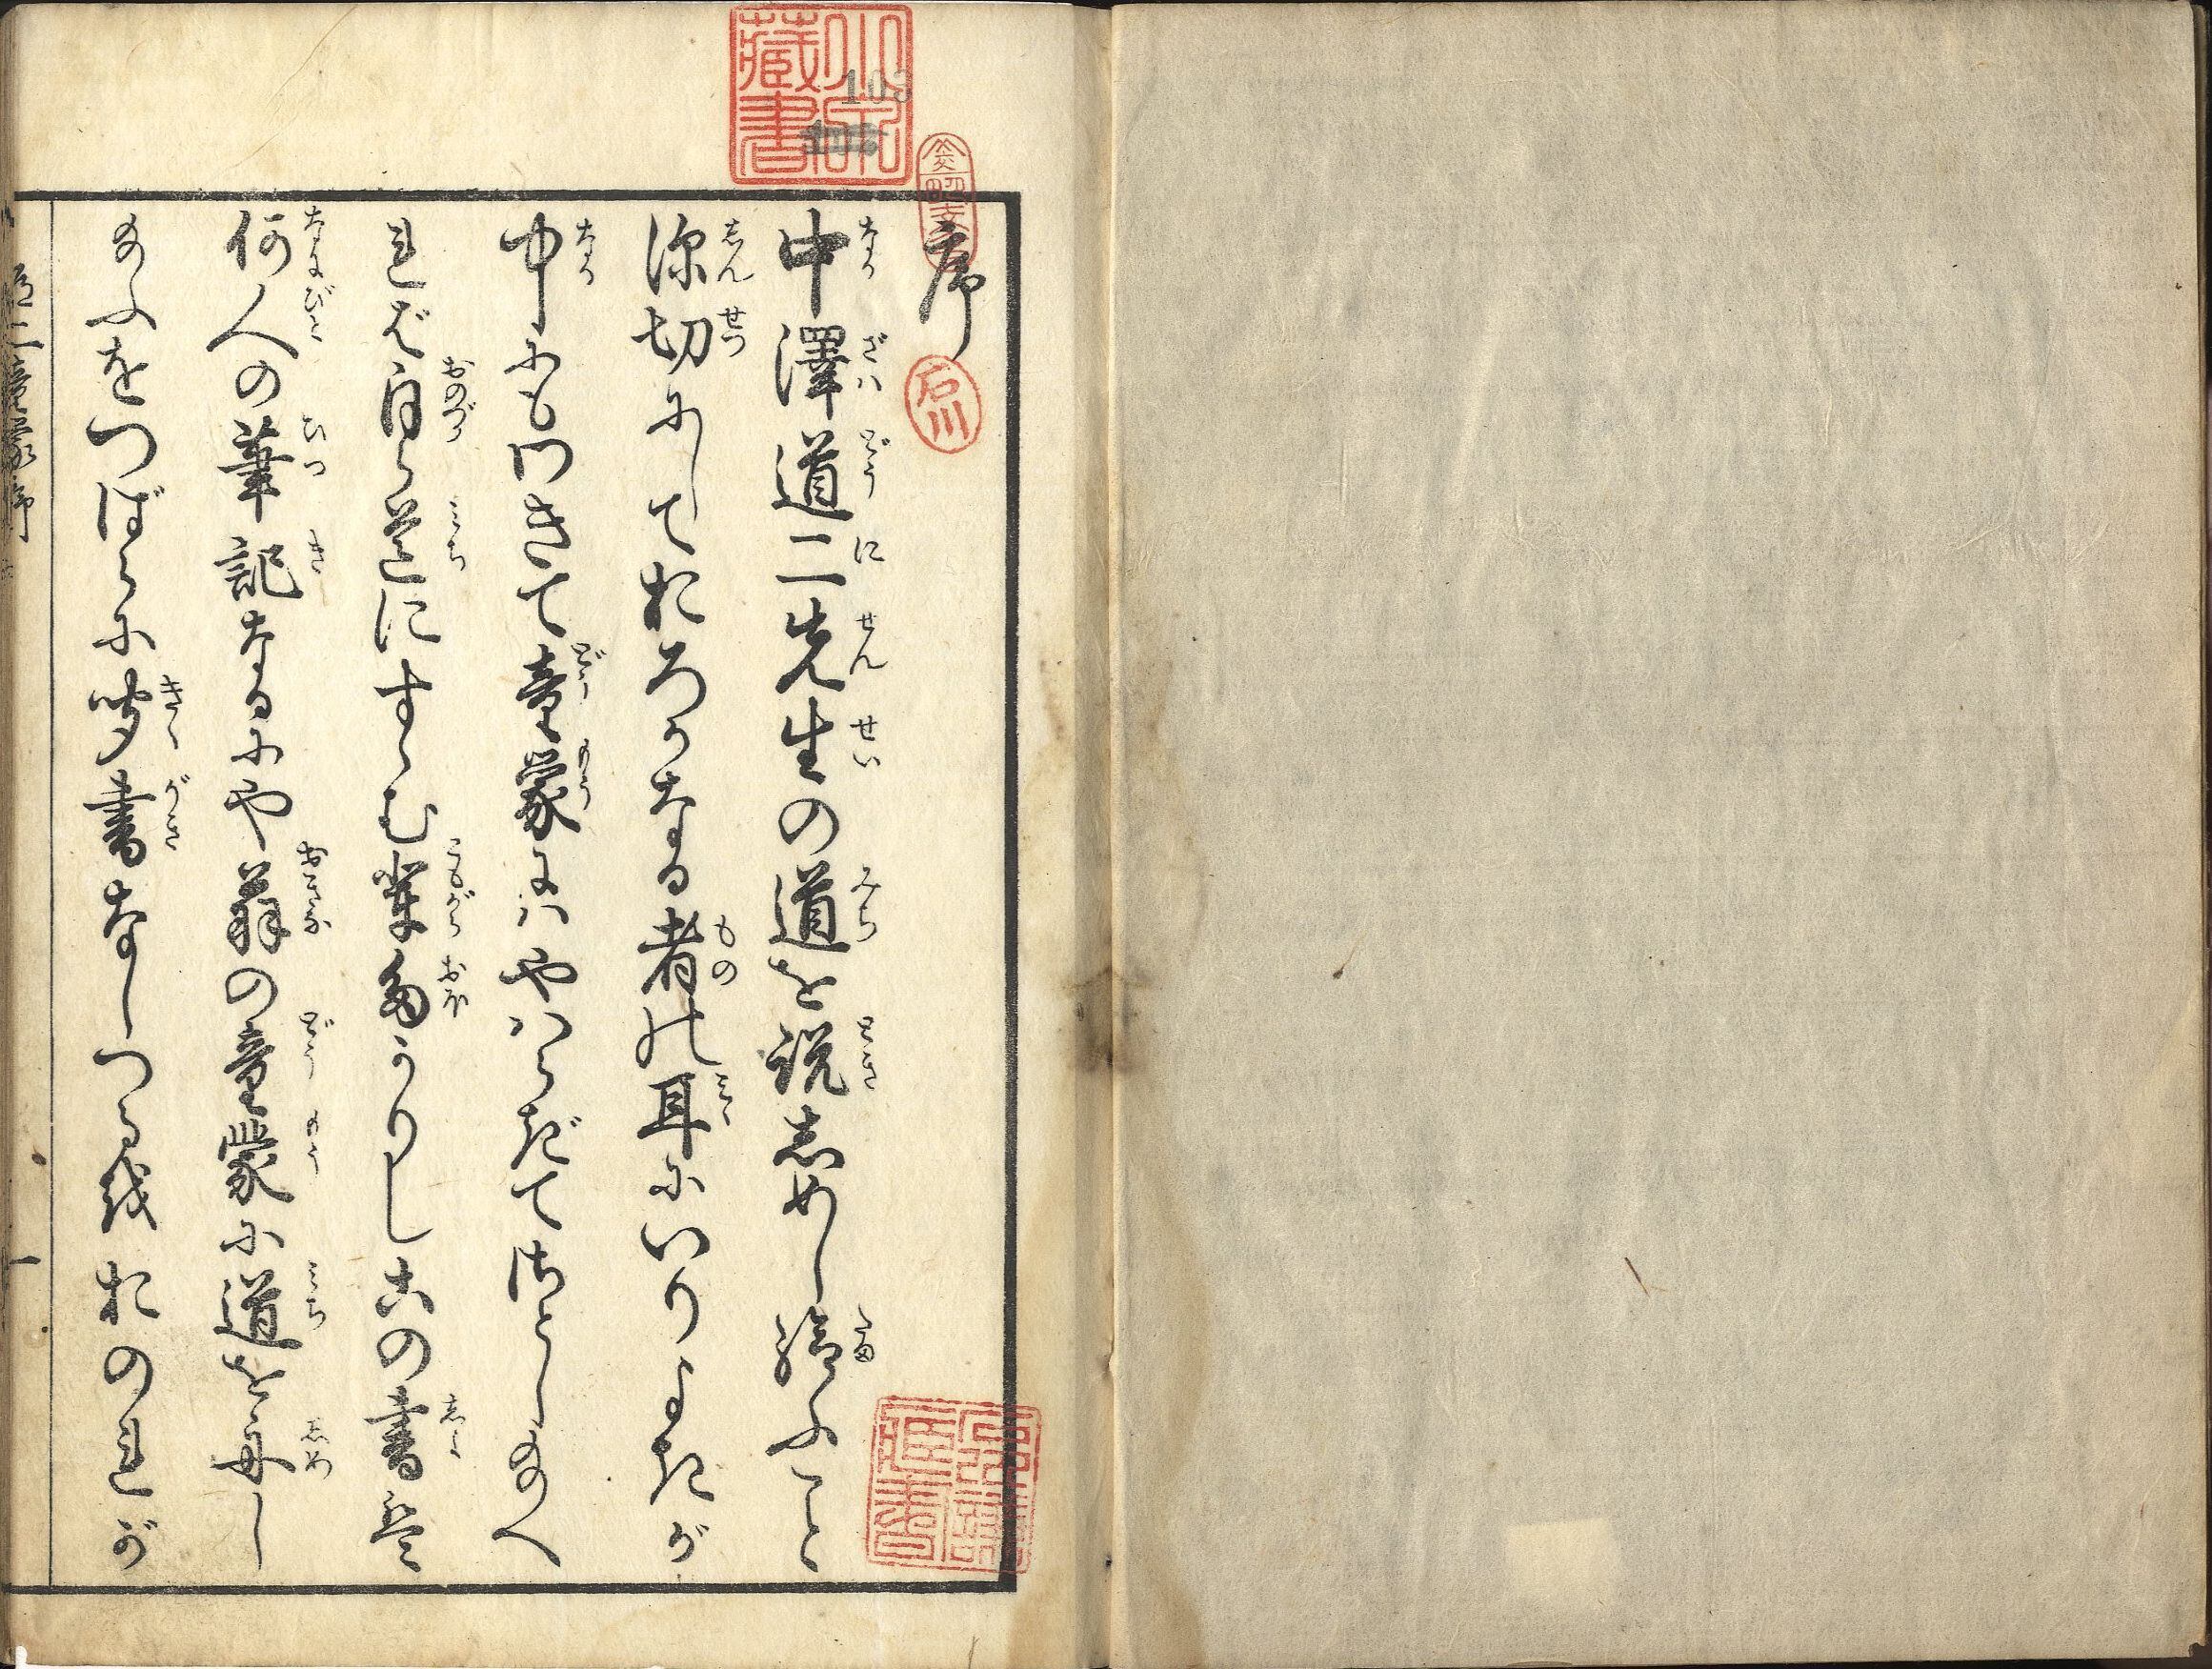 序
中澤道二先生の道を説志めし給ふこと
深切にしておろかなる者の耳にいりよきが
中にもわきて童蒙にハやハらぎてさとし給へ
れば自ら道にすゝむ輩多かりしこの書は
何人の筆記なるにや翁の童蒙に道を毎し
給ふをつばらに聞書なしつるを我おのれが
道二童蒙序
一
石川
藏書
103